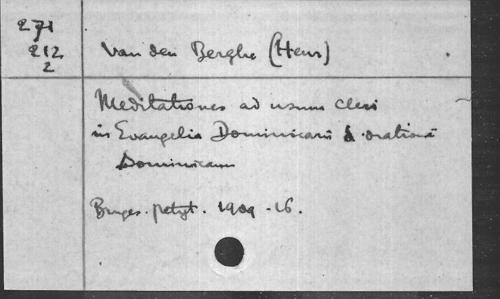 271
212
2
Van den Berghe (Henr)
Meditationes ad usum cleri
in Evangelia Dominicarū & orationē
Dominicam
Bruges. 1909-16.